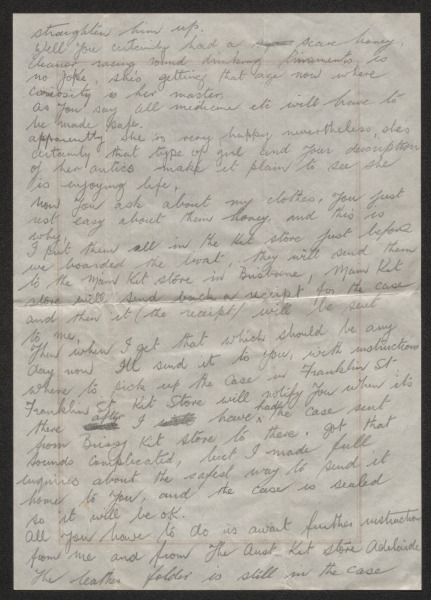 straighten him up.
Well you certainly had a scare honey,
Eleanor racing round drinking liniments is
no joke, she's getting that age now where
curiosity is her master.
As you say all medicine etc will have to
be made safe.
apparently she is very happy nevertheless, she's
certainly that type of girl and your description
of her antics make it plain to see she
is enjoying life.
Now you ask about my clothes. You just
rest easy about them honey, and this is
why.
I put them all in the Kit store just before
we boarded the boat, they will send them
to the Main Kit store in Brisbane, Main Kit
store will send back a receipt for the case
and then it (the receipt) will be sent
to me.
Then when I get that which should be any
day now I'll send it to you, with instructions
where to pick up the case in Franklin St.
Franklin St. Kit Store will notify you when its
there after I have had the case sent
from Brissy Kit store to there. Got that
sounds complicated, but I made full
inquiries about the safest way to send it
home to you, and the case is sealed
so it will be ok.
All you have to do is await further instruction
from me and from The Aust. Kit store Adelaide
The leather folder is still in the case